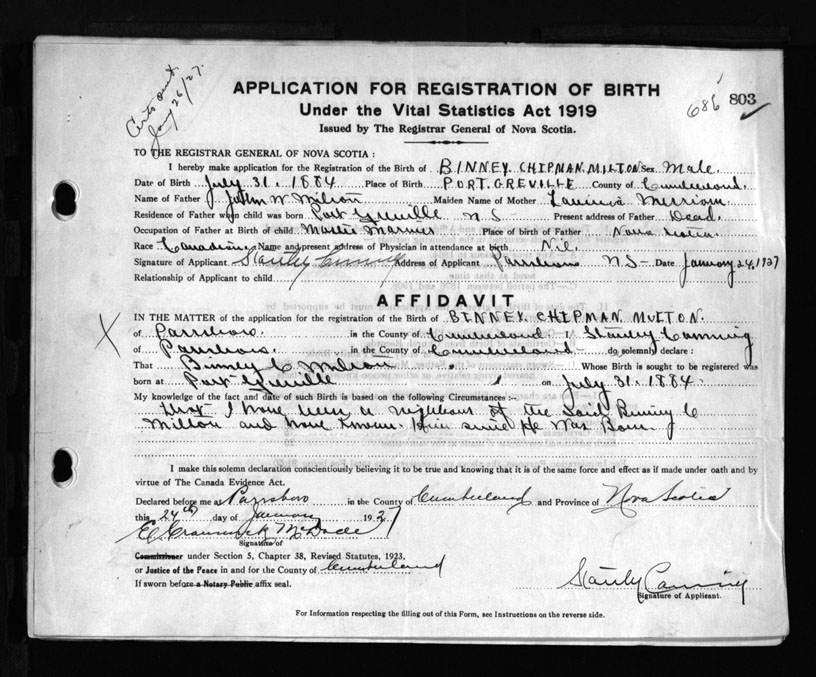 Certs sent
Jany 26/27.
APPLICATION FOR REGISTRATION OF BIRTH
Under the Vital Statistics Act 1919
Issued by The Registrar General of Nova Scotia.
686 803
TO THE REGISTRAR GENERAL OF NOVA SCOTIA:
I hereby make application for the Registration of the Birth of BINNEY CHIPMAN MILTON Sex Male.
Date of Birth July 31. 1884 Place of Birth PORT. GREVILLE County of Cumberland.
Name of Father John W Milton Maiden Name of Mother Lavinia Merriam
Residence of Father when child was born Port Greville N S Present address of Father Dead.
Occupation of Father at Birth of child Master Mariner Place of birth of Father Nova Scotia
Race Canadian Name and present address of Physician in attendance at birth Nil.
Signature of Applicant Stanley Canning Address of Applicant Parrsboro N.S. Date January 24, 1927
Relationship of Applicant to child
AFFIDAVIT
IN THE MATTER of the application for the registration of the Birth of BINNEY. CHIPMAN MILTON.
X of Parrsboro. in the County of Cumberland I Stanley Canning
of Parrsboro. in the County of Cumberland do solemnly declare:
That Binney C Milton Whose Birth is sought to be registered was
born at Port Greville on July 31. 1884.
My knowledge of the fact and date of such Birth is based on the following Circumstances :-
that I have been a neighbour of the said Binney C
Milton and have known him since He Was Born
I make this solemn declaration conscientiously believing it to be true and knowing that it is of the same force and effect as if made under oath and by
virtue of The Canada Evidence Act.
Declared before me at Parrsboro in the County of Cumberland and Province of Nova Scotia
this 24th day of January 1927
E. McDade
Signature of
Commissioner under Section 5, Chapter 38, Revised Statutes, 1923,
or Justice of the Peace in and for the County of Cumberland
If sworn before a Notary Public affix seal.
Stanley Canning
Signature of Applicant.
For Information respecting the filling out of this Form, see Instructions on the reverse side.